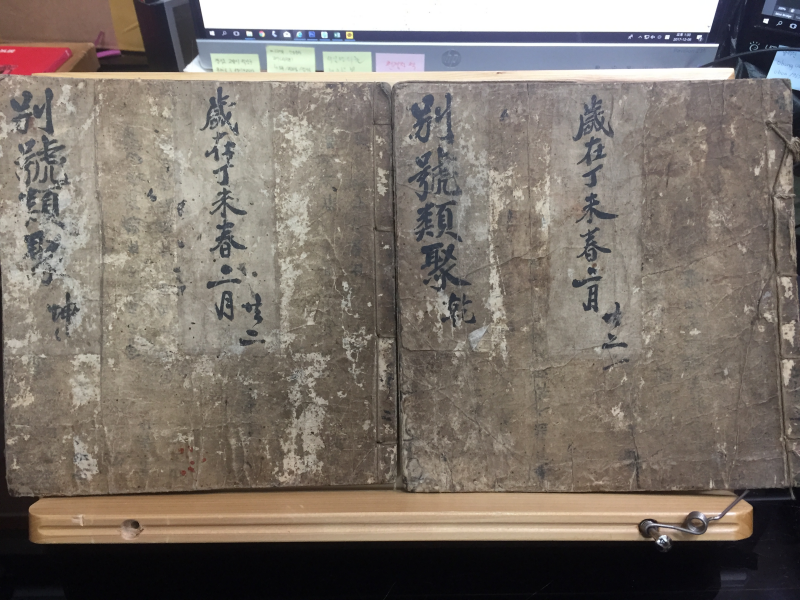 別號類聚 乾
歲在丁未春二月
共二
別號類聚 坤
歲在丁未春二月
共二
2017-12-05